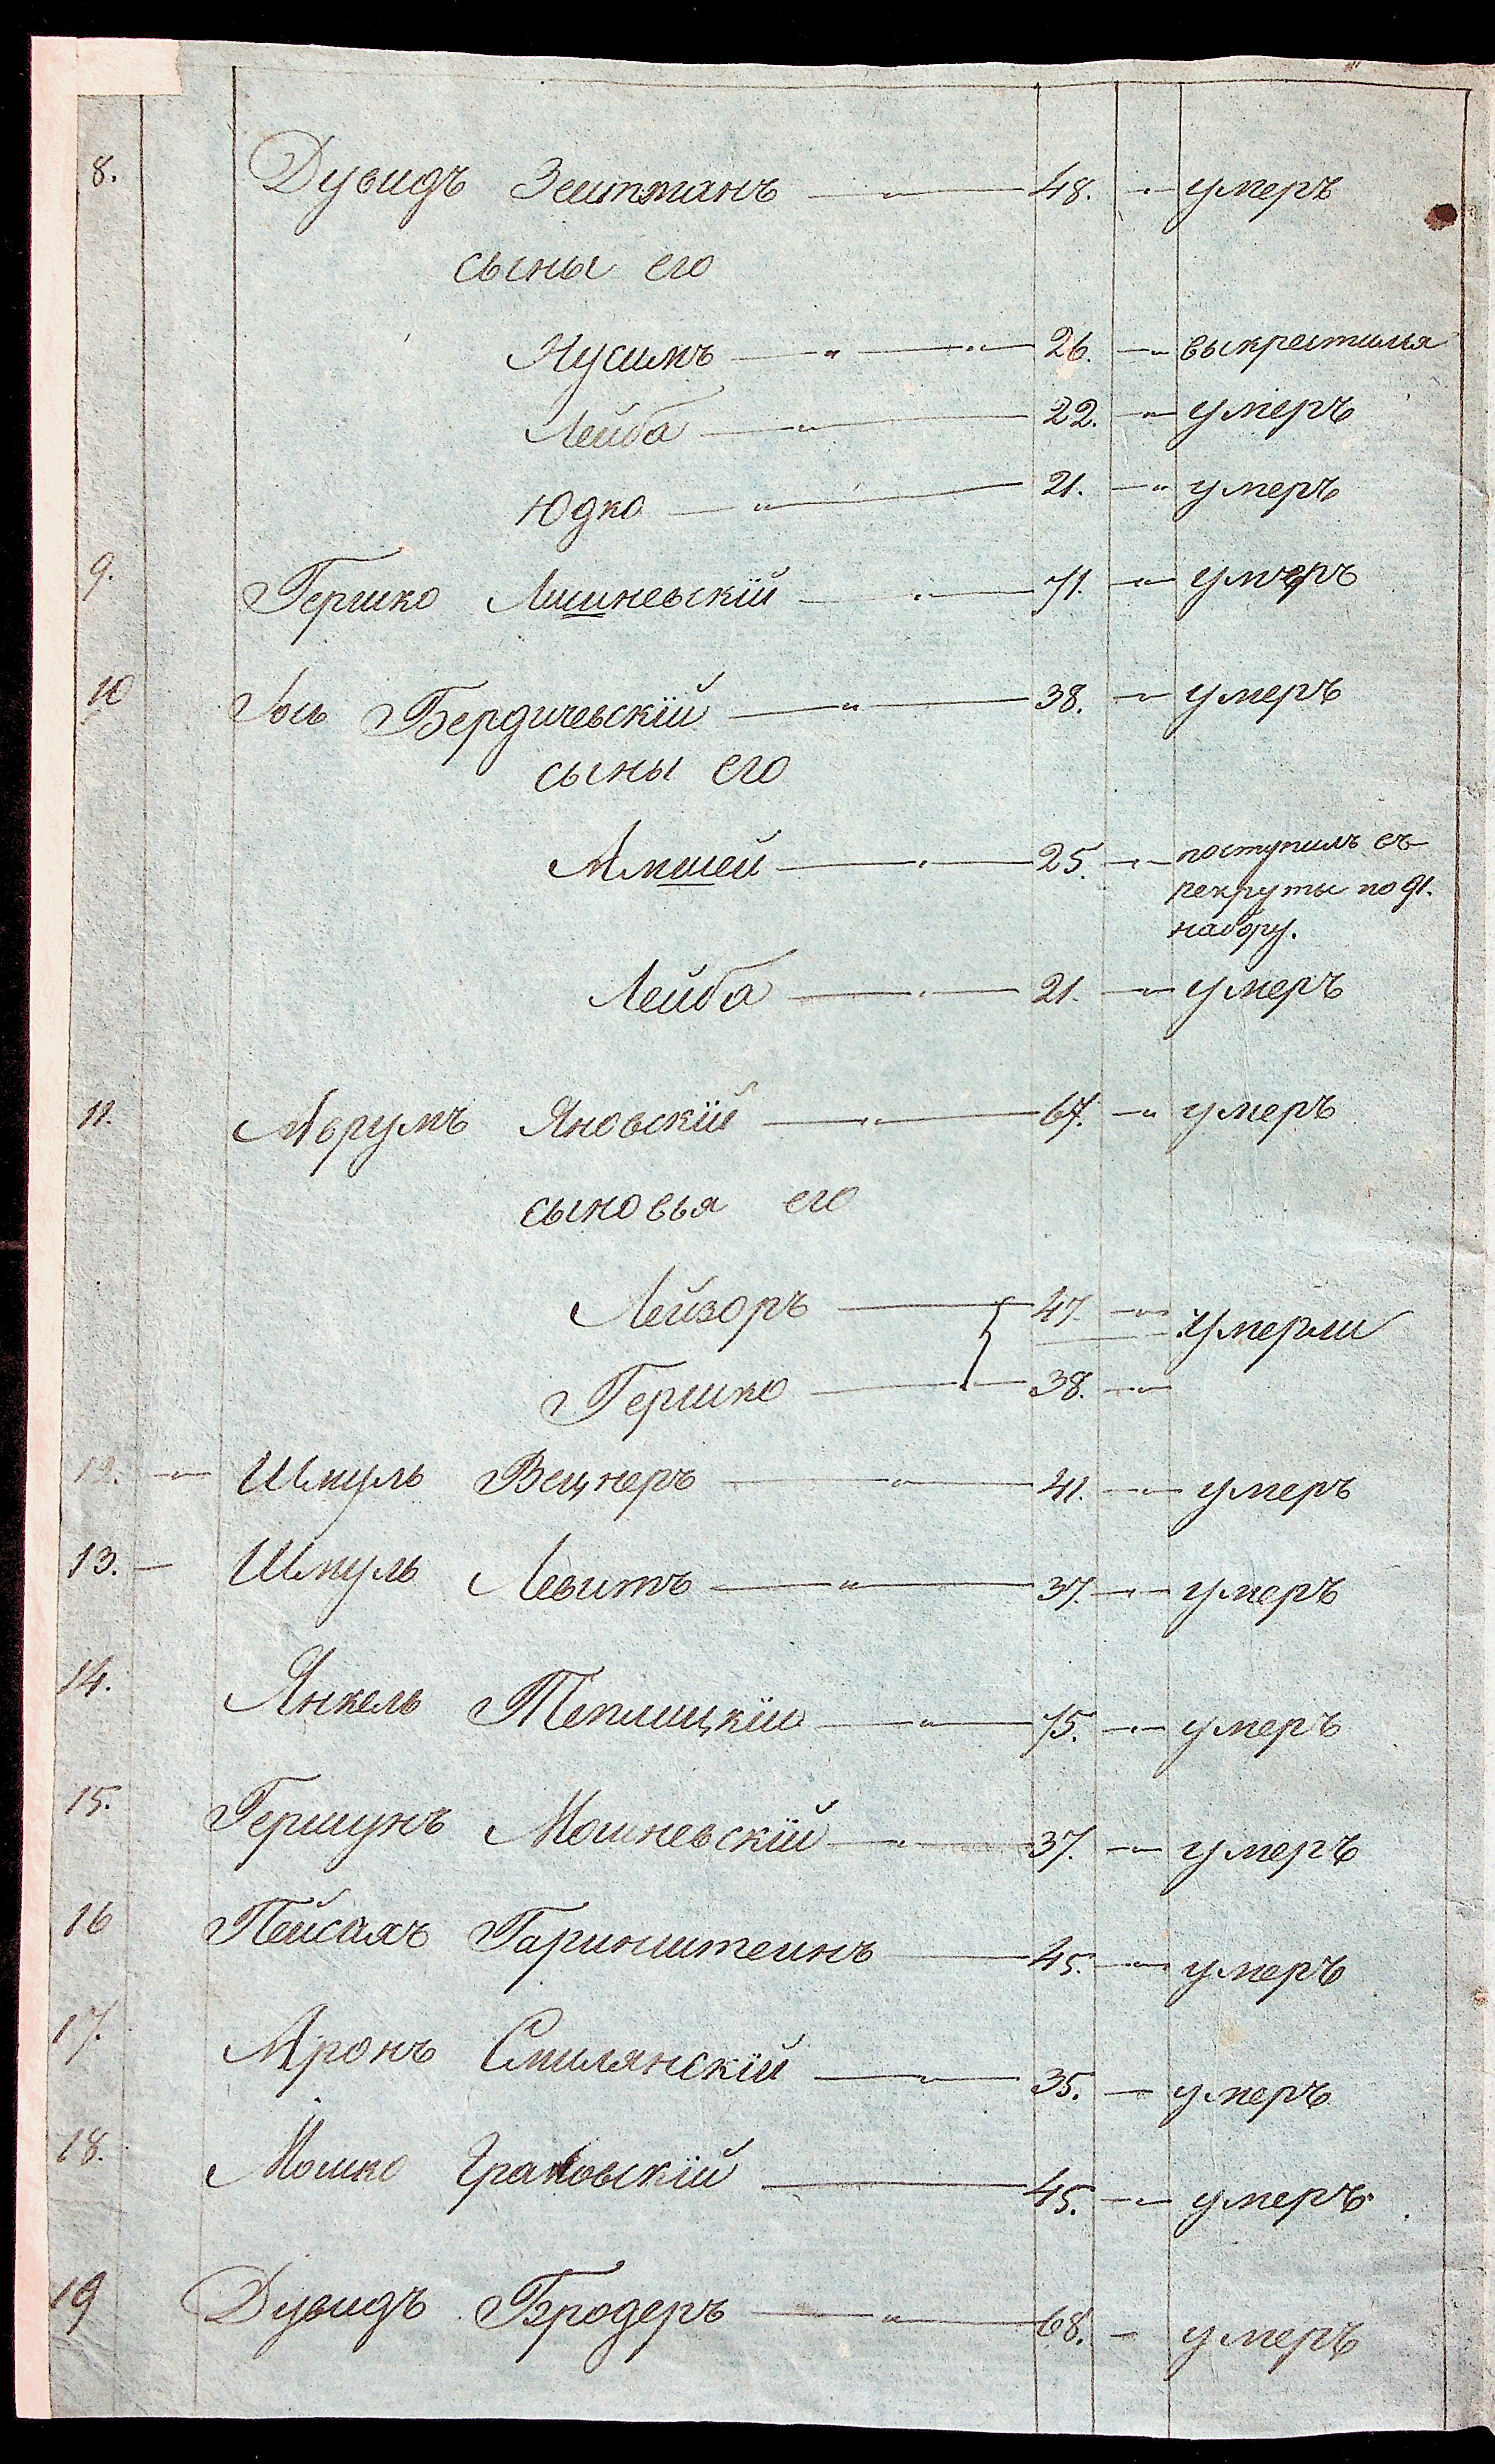 8. Дувидъ Зейтманъ — „ — 48. „ умеръ
сыны его
Нусимъ — „ — „ — 26. — „ выкрестился
Лейба — „ — 22. — „ умеръ
Юдко — „ — 21. — „ умеръ
9. Гершко Лишневскій — „ — 71. — „ умеръ
10 Іось Бердичевскій — „ — 38. — „ умеръ
сыны его
Амшей — „ — 25. — „ поступилъ въ
рекруты по 91.
набору.
Лейба — „ — 21. — „ умеръ
11. Аврумъ Яновскій — „ — 67. — „ умеръ
сыновья его
Лейзоръ — 47. — „ умерли
Гершко — 38. — „
12. — „ — Шмуль Вецнеръ — „ — 41. — „ умеръ
13. — Шмуль Левитъ — „ — 37. — „ умеръ
14. Янкель Теплицкій — „ — 75. — „ умеръ
15. Гершунъ Мошневскій — „ — 37. — „ умеръ
16 Пейсахъ Гаринштейнъ — 45. — „ умеръ
17. Аронъ Смилянскій — „ — 35. — умеръ
18. Мошко Граковскій — 45. — „ умеръ.
19 Дувидъ Бродеръ — „ — 68. — умеръ